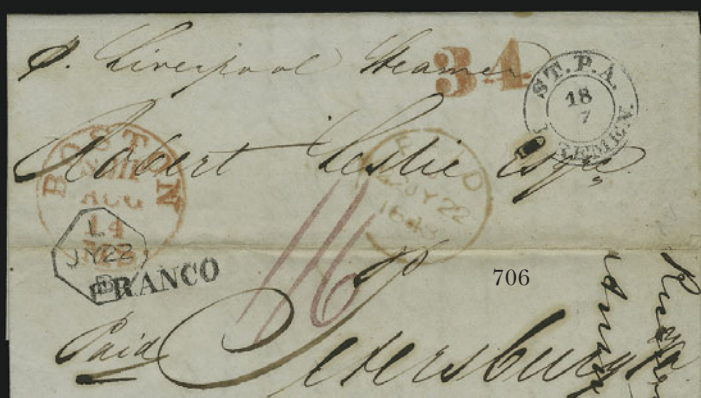 p. Liverpool Steamer
34
ST. P. A.
18
7
BREMEN.
Robert Leslie Esqr.
BOSTON
AUG
14
PAID
JY 22
1848
L
JY 22
FRANCO
116
706
St Petersburg
Paid